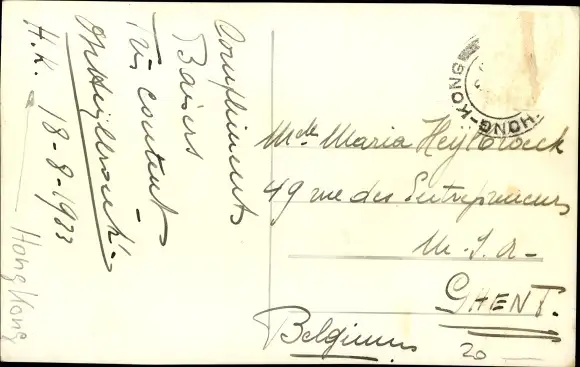 Compliments
Baisers
Très content
H.K. 18-8-1933
Hong Kong
HONG-KONG
HONG-KONG
Melle Maria Heÿlbroeck
49 rue des Entrepreneurs
M. S. A-
GHENT.
Belgium
20